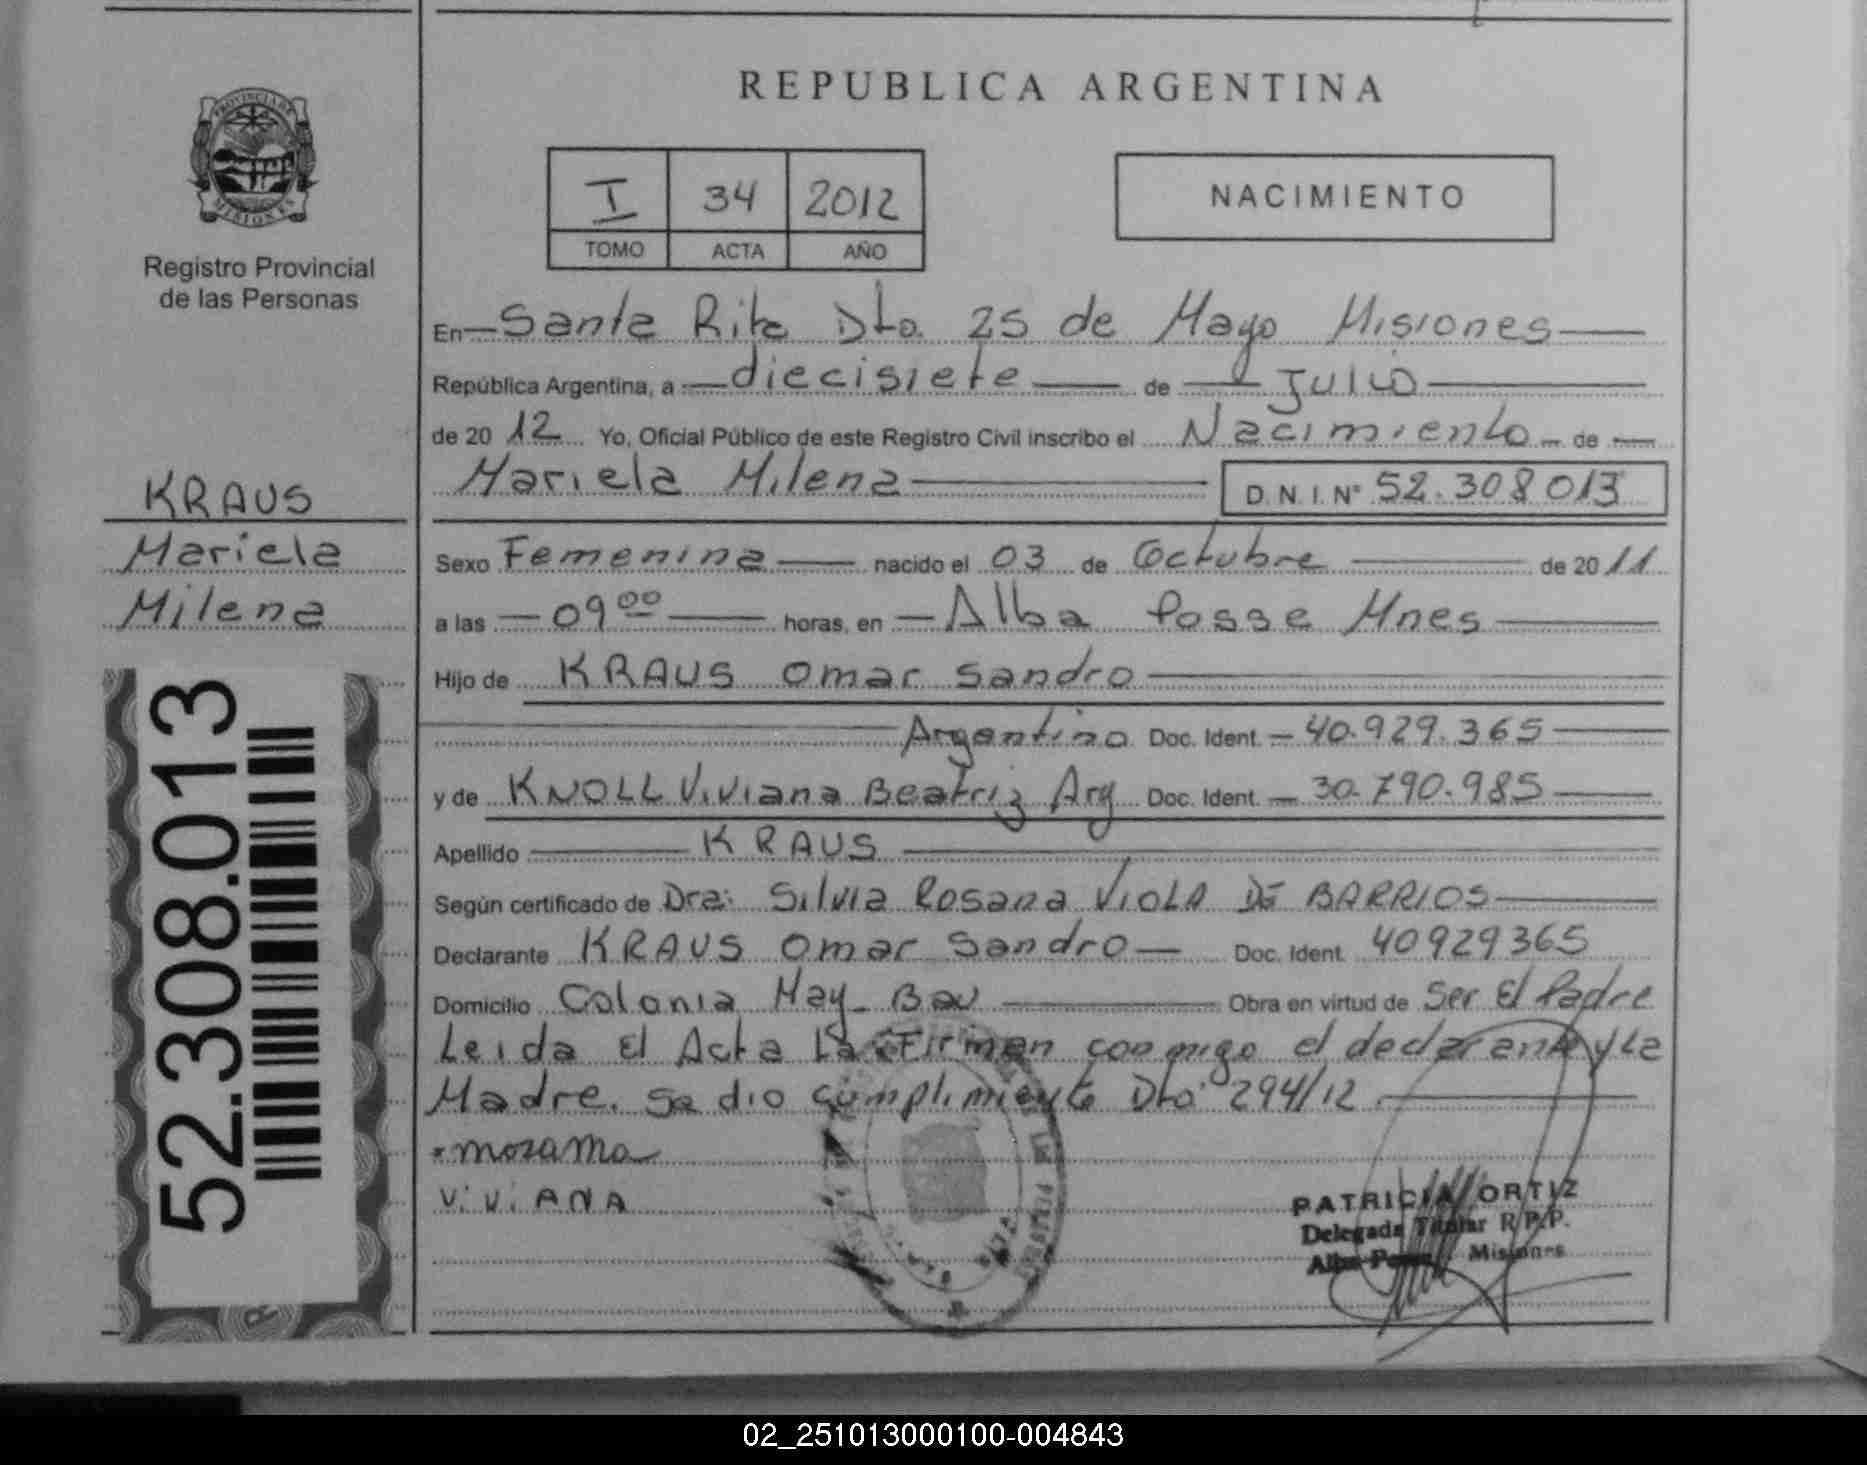 REPUBLICA ARGENTINA
PROVINCIA DE
MISIONES
Registro Provincial
de las Personas
I 34 2012
TOMO ACTA AÑO
NACIMIENTO
En Santa Rita Dto. 25 de Mayo Misiones
República Argentina, a diecisiete de Julio
de 20 12 Yo, Oficial Público de este Registro Civil inscribo el Nacimiento de
Mariela Milena D.N.I.N° 52.308013
KRAUS
Mariela
Milena
Sexo Femenina nacido el 03 de Octubre de 20 11
a las 09 00 horas, en Alba Posse Mnes
Hijo de KRAUS Omar Sandro
Argentino Doc. Ident. 40.929.365
y de KNOLL Viviana Beatriz Arg Doc. Ident. 30.790.985
Apellido KRAUS
Según certificado de Dra: Silvia Rosana VIOLA DE BARRIOS
Declarante KRAUS Omar Sandro Doc. Ident. 40929365
Domicilio Colonia May Bau Obra en virtud de Ser El Padre
Leida El Acta La Firman conmigo el declarante y La
Madre. se dio cumplimiento Dto 294/12
VIVIANA
52.308.013
PATRICIA ORTIZ
Delegada Titular R.P.P.
Alba Posse Misiones
02_251013000100-004843